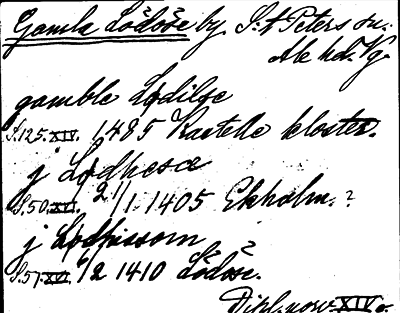 Gamla Lödöse by, S:t Peters sn.
Ale hd. Vg.
gamble Lødilse
S.125. XIV. 1485 Kastelle kloster.
j Lødhesæ
S.50. XVI. 21/1 1405 Ekholm. ?
j
S.57. XVI. 6/2 1410 Lödöse.
Dipl. norv. XIV.